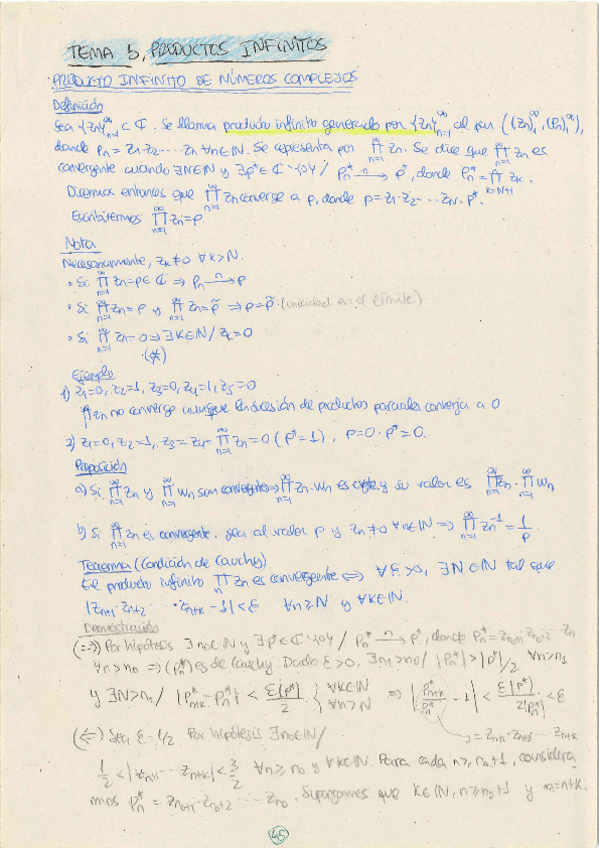 TEMA 5, PRODUCTOS INFINITOS
PRODUCTO INFINITO DE NÚMEROS COMPLEJOS
Definición
Sea {Zn}_{n=1}^∞ ⊂ ℂ. Se llama producto infinito generado por {Zn}_{n=1}^∞ al par ((Zn)_{n=1}^∞, (Pn)_{n=1}^∞),
donde Pn = Z1·Z2·...·Zn ∀n∈ℕ. Se representa por ∏_{n=1}^∞ Zn. Se dice que ∏_{n=1}^∞ Zn es
convergente cuando ∃N∈ℕ y ∃p*∈ℂ\{0} / Pn* →^n p*, donde Pn* = ∏_{k=N+1}^n Zk.
Diremos entonces que ∏_{n=1}^∞ Zn converge a p, donde p = Z1·Z2·...·ZN·p*.
Escribiremos ∏_{n=1}^∞ Zn = p
Nota
Necesariamente, Zk≠0 ∀k>N.
• Si ∏_{n=1}^∞ Zn = p∈ℂ ⇒ Pn →^n p
• Si ∏_{n=1}^∞ Zn = p y ∏_{n=1}^∞ Zn = p̃ ⇒ p = p̃. (unicidad en el límite)
• Si ∏_{n=1}^∞ Zn = 0 ⇒ ∃k∈ℕ / Zk = 0
(*)
Ejemplo
1) Z1=0, Z2=1, Z3=0, Z4=1, Z5=0
∏ Zn no converge aunque la sucesión de productos parciales converja a 0
2) Z1=0, Z2=1, Z3=Z4= ∏_{n=1}^∞ Zn = 0 (p*=1), p=0·p*=0.
Proposición
a) Si ∏_{n=1}^∞ Zn y ∏_{n=1}^∞ Wn son convergentes ⇒ ∏_{n=1}^∞ Zn·Wn es y su valor es ∏_{n=1}^∞ Zn · ∏_{n=1}^∞ Wn
b) Si ∏_{n=1}^∞ Zn es convergente, sea al valor p y Zn≠0 ∀n∈ℕ ⇒ ∏_{n=1}^∞ Zn^{-1} = 1/p
Teorema (Condición de Cauchy)
El producto infinito ∏_n Zn es convergente ⇔ ∀ε>0, ∃N∈ℕ tal que
|Zn+1·Zn+2· ·Zn+k −1| < ε ∀n≥N y ∀k∈ℕ.
Demostración
(⇒) Por hipótesis ∃n0∈ℕ y ∃p*∈ℂ\{0} / Pn* →^n p*, donde Pn* = Zn0+1·Zn0+2·...Zn
∀n>n0 ⇒ (Pn*) es de Cauchy. Dado ε>0, ∃n1>n0 / |Pn*| > |p*|/2 ∀n>n1
y ∃N>n1 / |P*n+k − Pn*| < ε|p*|/2 { ∀k∈ℕ ∀n≥N ⇒ |P*n+k/Pn* − 1| < ε|p*|/2|Pn*| < ε
= Zn+1·Zn+2 ... Zn+k
(⇐) Sea ε=1/2. Por hipótesis ∃n0∈ℕ/
1/2 < |Zn+1 ... Zn+k| < 3/2 ∀n≥n0 y ∀k∈ℕ. Para cada n≥n0+1, considera
mos Pn* = Zn0+1·Zn0+2 ... Zn. Supongamos que k∈ℕ, n≥n0+1 y m=n+k.
45